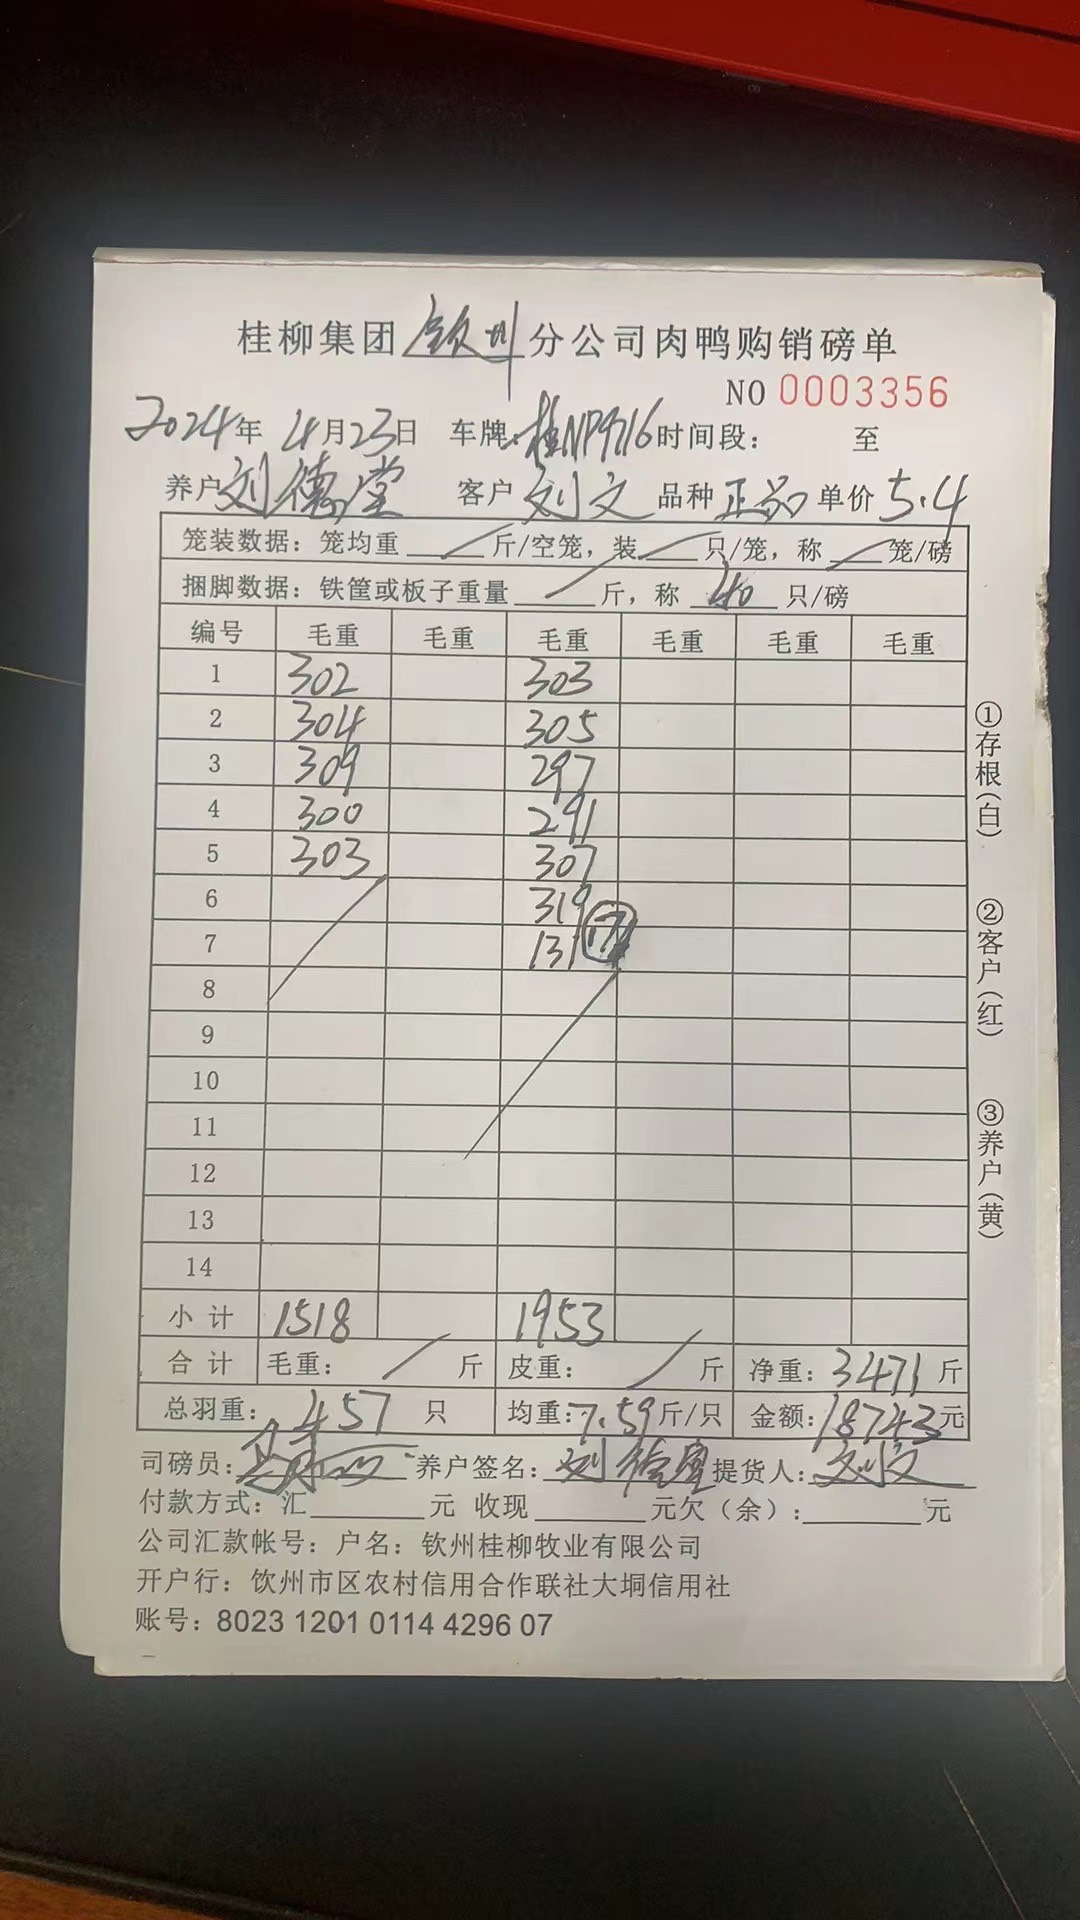 桂柳集团钦州分公司肉鸭购销磅单
NO 0003356
2024年 4月23日 车牌:桂NP9716 时间段: 至
养户 刘德堂 客户 刘文 品种 正品 单价 5.4
笼装数据: 笼均重 / 斤/空笼, 装 / 只/笼, 称 / 笼/磅
捆脚数据: 铁筐或板子重量 / 斤, 称 40 只/磅
编号 毛重 毛重 毛重 毛重 毛重 毛重
1 302 303
2 304 305
3 309 297
4 300 291
5 303 307
6 319
7 131 17
8
9
10
11
12
13
14
小计 1518 1953
合计 毛重: / 斤 皮重: / 斤 净重: 3471 斤
总羽重: 457 只 均重: 7.59 斤/只 金额: 18743 元
司磅员: 养户签名: 刘德堂 提货人: 刘文
付款方式: 汇 元 收现 元欠(余): 元
公司汇款帐号: 户名: 钦州桂柳牧业有限公司
开户行: 钦州市区农村信用合作联社大垌信用社
账号: 8023 1201 0114 4296 07
①存根(白)
②客户(红)
③养户(黄)